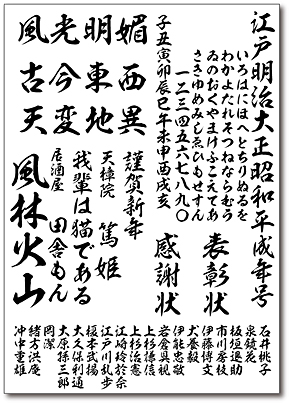 江戸明治大正昭和平成年号
いろはにほへとちりぬるを
わかよたれそつねならむう
ゐのおくやまけふこえてあ
さきゆめみしゑひもせすん
一二三四五六七八九〇
子丑寅卯辰巳午未申酉戌亥
風光明媚
古今東西
天変地異
表彰状
感謝状
謹賀新年
天樟院 篤姫
我輩は猫である
居酒屋 田舎もん
風林火山
石井桃子
泉鏡花
板垣退助
市川房枝
伊藤博文
犬養毅
伊能忠敬
岩倉具視
上杉謙信
上杉治憲
江崎玲於奈
江戸川乱歩
榎本武揚
大久保利通
大原孫三郎
岡潔
緒方洪庵
沖中重雄